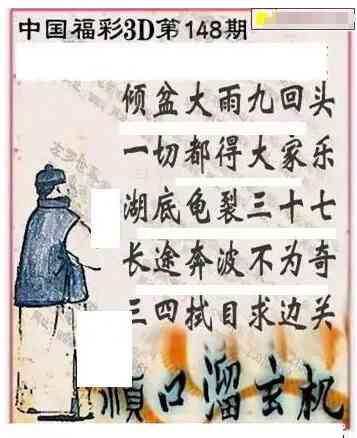 中国福彩3D第148期
倾盆大雨九回头
一切都得大家乐
湖底龟裂三十七
长途奔波不为奇
三四拭目求边关
顺口溜玄机